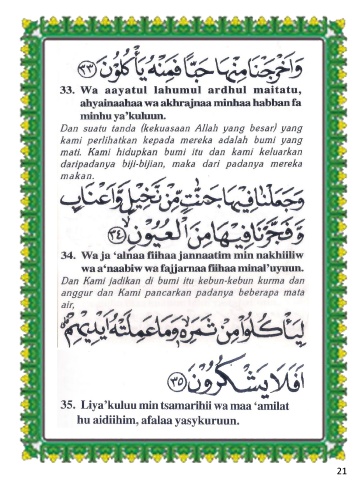 وَاَخْرَجْنَا مِنْهَا حَبًّا فَمِنْهُ يَأْكُلُوْنَ ﴿٣٣﴾
33. Wa aayatul lahumul ardhul maitatu,
ahyainaahaa wa akhrajnaa minhaa habban fa
minhu ya'kuluun.
Dan suatu tanda (kekuasaan Allah yang besar) yang
kami perlihatkan kepada mereka adalah bumi yang
mati. Kami hidupkan bumi itu dan kami keluarkan
daripadanya biji-bijian, maka dari padanya mereka
makan.
وَجَعَلْنَا فِيْهَا جَنّٰتٍ مِّنْ نَّخِيْلٍ وَّاَعْنَابٍ
وَّفَجَّرْنَا فِيْهَا مِنَ الْعُيُوْنِ ﴿٣٤﴾
34. Wa ja 'alnaa fiihaa jannaatim min nakhiiliw
wa a'naabiw wa fajjarnaa fiihaa minal'uyuun.
Dan Kami jadikan di bumi itu kebun-kebun kurma dan
anggur dan Kami pancarkan padanya beberapa mata
air,
لِيَأْكُلُوْا مِنْ ثَمَرِهٖ وَمَا عَمِلَتْهُ اَيْدِيْهِمْ
اَفَلَا يَشْكُرُوْنَ ﴿٣٥﴾
35. Liya'kuluu min tsamarihii wa maa 'amilat
hu aidiihim, afalaa yasykuruun.
21